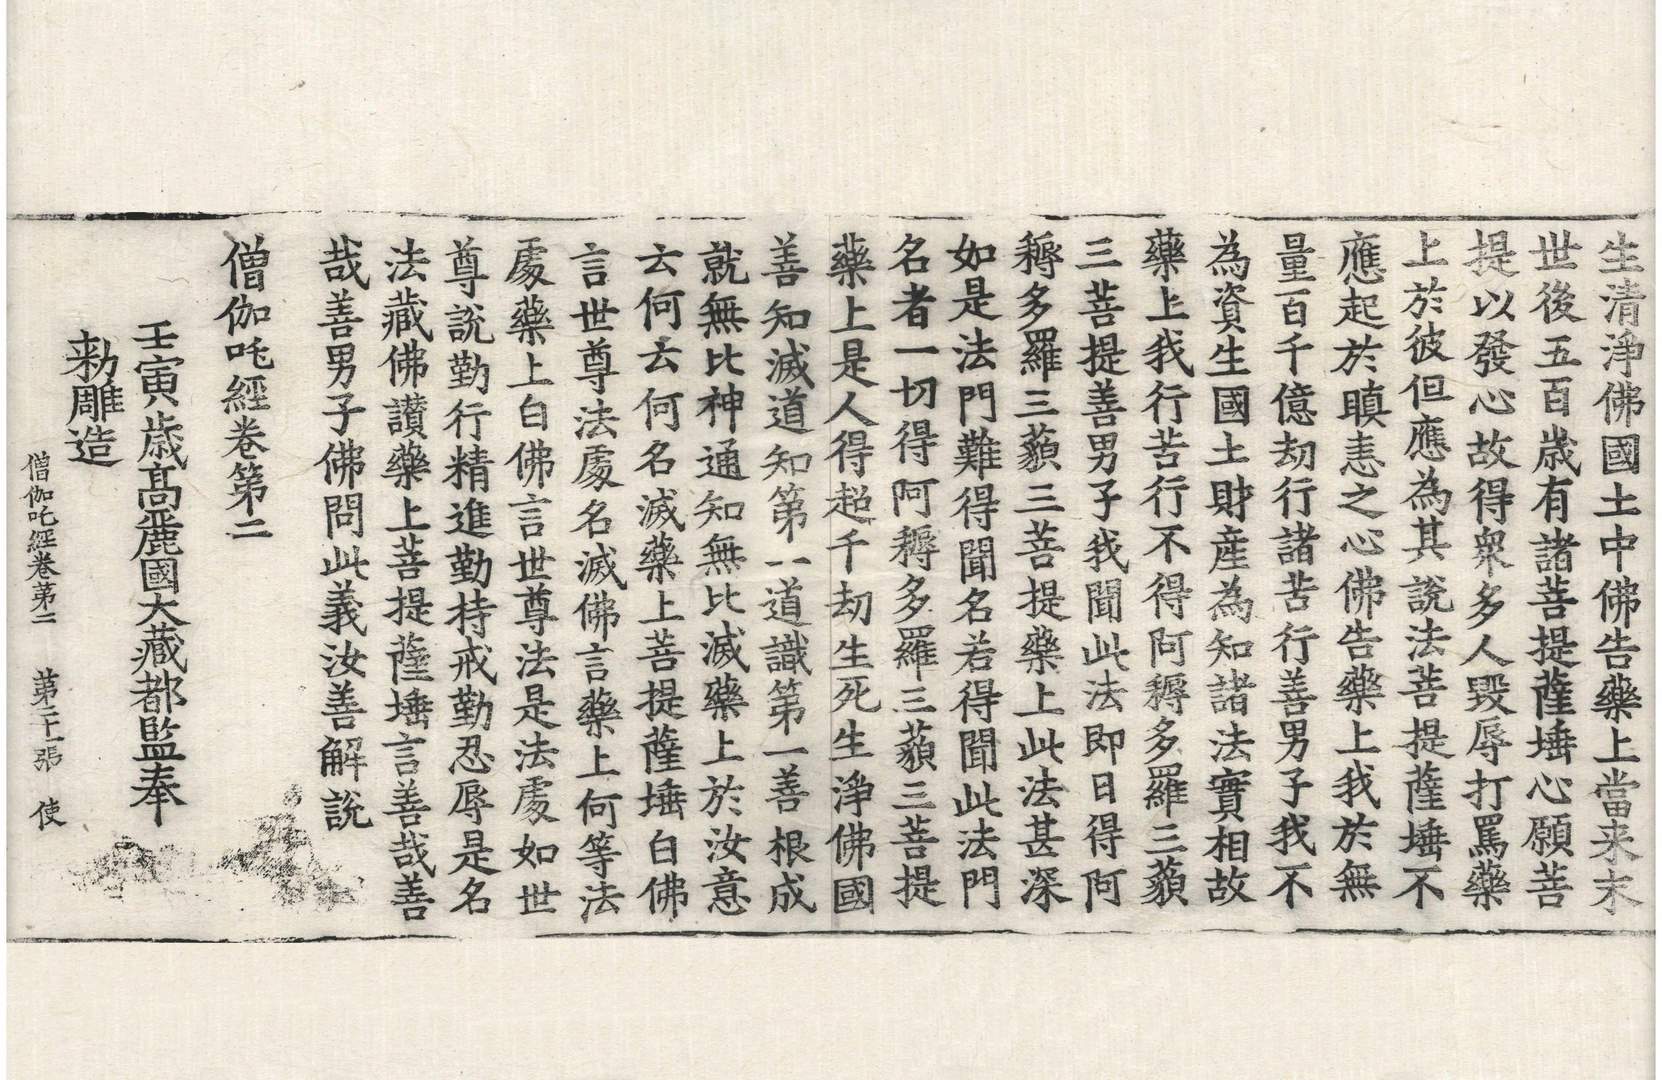 生清淨佛國土中佛告藥上當来末
世後五百歲有諸菩提薩埵心願菩
提以發心故得衆多人毀辱打罵藥
上於彼但應為其說法菩提薩埵不
應起於瞋恚之心佛告藥上我於無
量百千億劫行諸苦行善男子我不
為資生國土財産為知諸法實相故
藥上我行苦行不得阿耨多羅三藐
三菩提善男子我聞此法即日得阿
耨多羅三藐三菩提藥上此法甚深
如是法門難得聞名若得聞此法門
名者一切得阿耨多羅三藐三菩提
藥上是人得超千劫生死生淨佛國
善知滅道知第一道識第一善根成
就無比神通知無比滅藥上於汝意
云何云何名滅藥上菩提薩埵白佛
言世尊法處名滅佛言藥上何等法
處藥上白佛言世尊法是法處如世
尊說勤行精進勤持戒勤忍辱是名
法藏佛讃藥上菩提薩埵言善哉善
哉善男子佛問此義汝善解說
僧伽吒經卷第二
壬寅歲髙麗國大藏都監奉
勑雕造
僧伽吒經卷第二 第二十一張 使